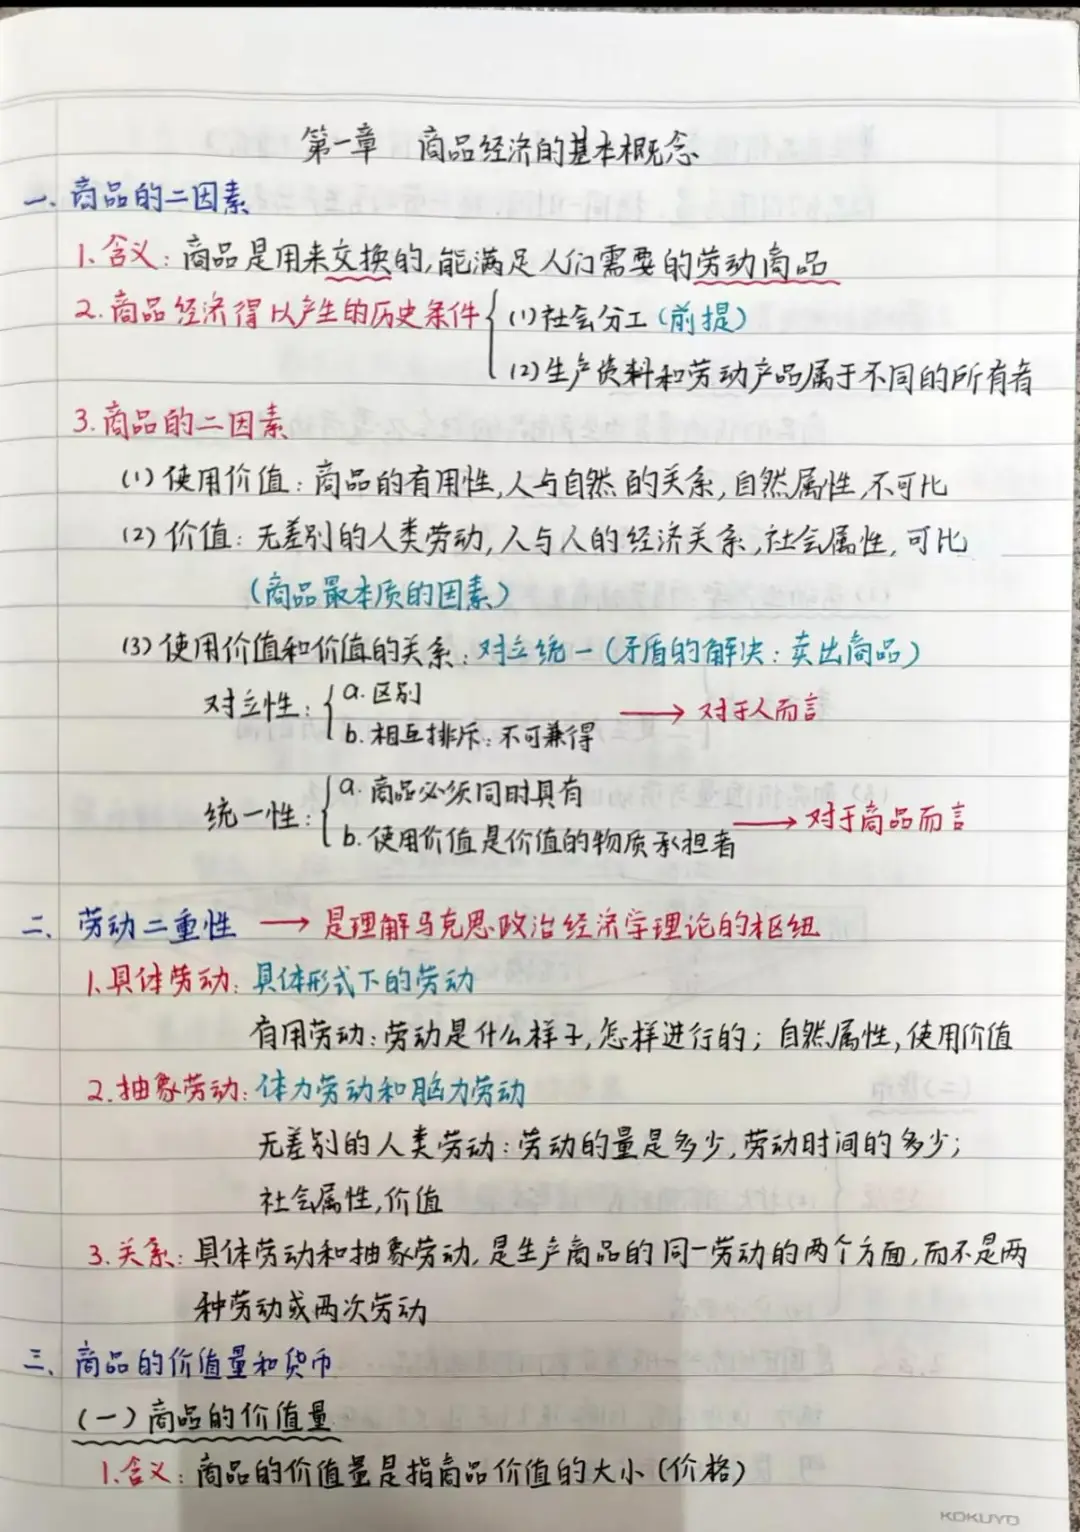 第一章 商品经济的基本概念
一、商品的二因素
1.含义：商品是用来交换的,能满足人们需要的劳动商品
2.商品经济得以产生的历史条件 (1)社会分工(前提)
(2)生产资料和劳动产品属于不同的所有者
3.商品的二因素
(1)使用价值：商品的有用性,人与自然的关系,自然属性,不可比
(2)价值：无差别的人类劳动,人与人的经济关系,社会属性,可比
(商品最本质的因素)
(3)使用价值和价值的关系：对立统一(矛盾的解决：卖出商品)
对立性： a.区别
b.相互排斥：不可兼得 → 对于人而言
统一性： a.商品必须同时具有
b.使用价值是价值的物质承担者 → 对于商品而言
二、劳动二重性 → 是理解马克思政治经济学理论的枢纽
1.具体劳动：具体形式下的劳动
有用劳动：劳动是什么样子,怎样进行的；自然属性,使用价值
2.抽象劳动：体力劳动和脑力劳动
无差别的人类劳动：劳动的量是多少,劳动时间的多少；
社会属性,价值
3.关系：具体劳动和抽象劳动,是生产商品的同一劳动的两个方面,而不是两
种劳动或两次劳动
三、商品的价值量和货币
(一)商品的价值量
1.含义：商品的价值量是指商品价值的大小(价格)
KOKUYO